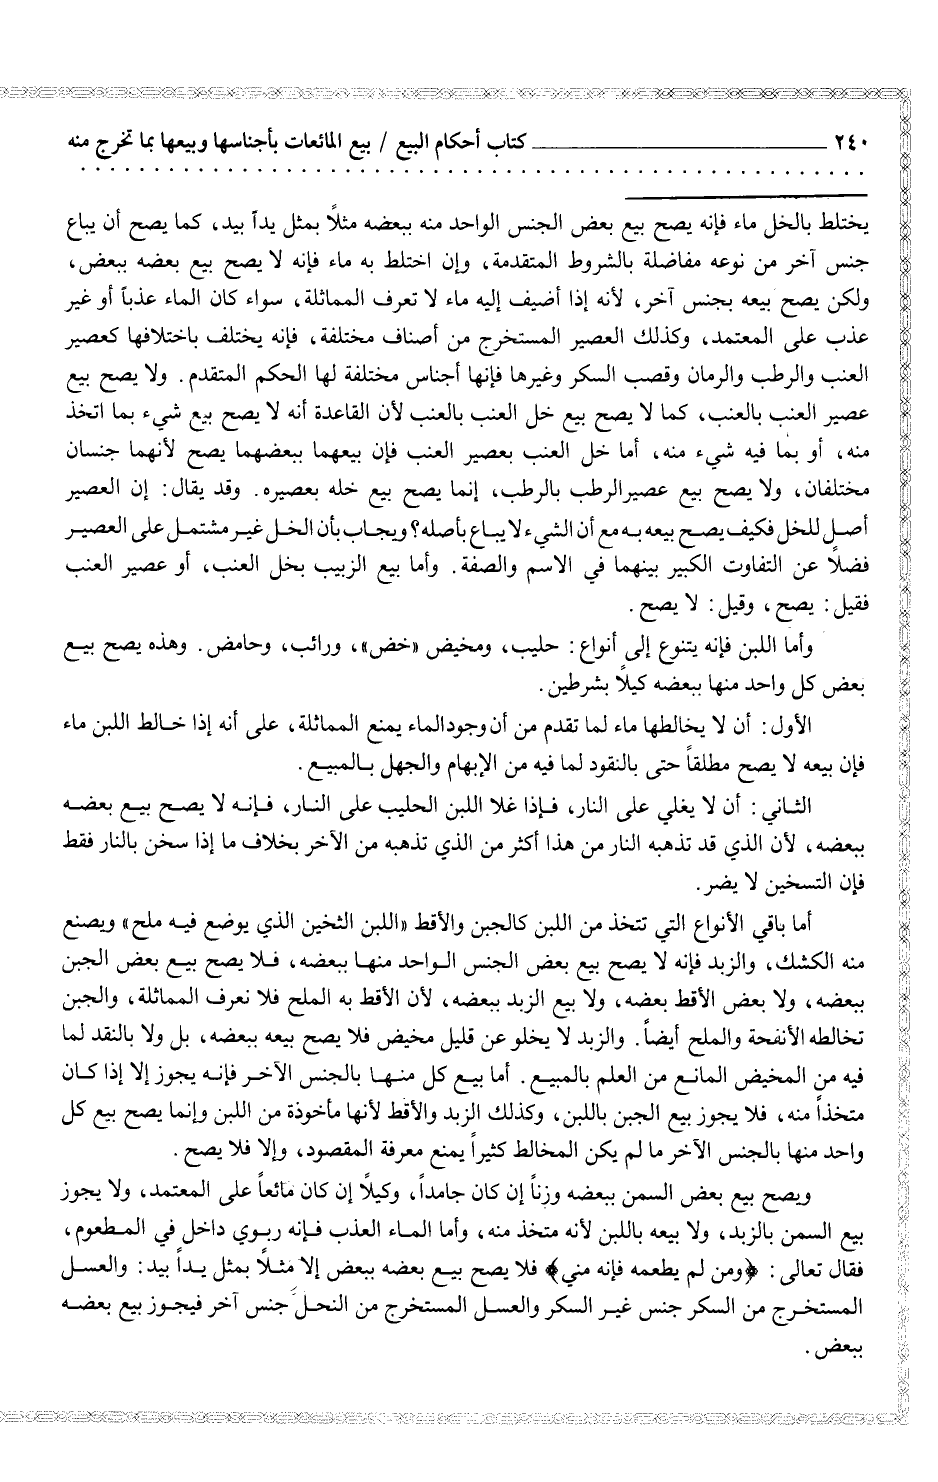 ٢٤٠ كتاب أحكام البيع / بيع المائعات بأجناسها وبيعها بما تخرج منه
يختلط بالخل ماء فإنه يصح بيع بعض الجنس الواحد منه ببعضه مثلاً بمثل يداً بيد، كما يصح أن يباع
جنس آخر من نوعه مفاضلة بالشروط المتقدمة، وإن اختلط به ماء فإنه لا يصح بيع بعضه ببعض،
ولكن يصح بيعه بجنس آخر، لأنه إذا أضيف إليه ماء لا تعرف المماثلة، سواء كان الماء عذباً أو غير
عذب على المعتمد، وكذلك العصير المستخرج من أصناف مختلفة، فإنه يختلف باختلافها كعصير
العنب والرطب والرمان وقصب السكر وغيرها فإنها أجناس مختلفة لها الحكم المتقدم. ولا يصح بيع
عصير العنب بالعنب، كما لا يصح بيع خل العنب بالعنب لأن القاعدة أنه لا يصح بيع شيء بما اتخذ
منه، أو بما فيه شيء منه، أما خل العنب بعصير العنب فإن بيعهما ببعضهما يصح لأنهما جنسان
مختلفان، ولا يصح بيع عصير الرطب بالرطب، إنما يصح بيع خله بعصيره. وقد يقال: إن العصير
أصل للخل فكيف يصح بيعه به مع أن الشيء لا يباع بأصله؟ ويجاب بأن الخل غير مشتمل على العصير
فضلاً عن التفاوت الكبير بينهما في الاسم والصفة. وأما بيع الزبيب بخل العنب، أو عصير العنب
فقيل: يصح، وقيل: لا يصح.
وأما اللبن فإنه يتنوع إلى أنواع: حليب، ومخيض «خض»، ورائب، وحامض. وهذه يصح بيع
بعض كل واحد منها ببعضه كيلاً بشرطين.
الأول: أن لا يخالطها ماء لما تقدم من أن وجود الماء يمنع المماثلة، على أنه إذا خالط اللبن ماء
فإن بيعه لا يصح مطلقاً حتى بالنقود لما فيه من الإبهام والجهل بالمبيع.
الثاني: أن لا يغلي على النار، فإذا غلا اللبن الحليب على النار، فإنه لا يصح بيع بعضه
ببعضه، لأن الذي قد تذهبه النار من هذا أكثر من الذي تذهبه من الآخر بخلاف ما إذا سخن بالنار فقط
فإن التسخين لا يضر.
أما باقي الأنواع التي تتخذ من اللبن كالجبن والأقط «اللبن الثخين الذي يوضع فيه ملح» ويصنع
منه الكشك، والزبد فإنه لا يصح بيع بعض الجنس الواحد منها ببعضه، فلا يصح بيع بعض الجبن
ببعضه، ولا بعض الأقط بعضه، ولا بيع الزبد ببعضه، لأن الأقط به الملح فلا نعرف المماثلة، والجبن
تخالطه الأنفحة والملح أيضاً. والزبد لا يخلو عن قليل مخيض فلا يصح بيعه ببعضه، بل ولا بالنقد لما
فيه من المخيض المانع من العلم بالمبيع. أما بيع كل منها بالجنس الآخر فإنه يجوز إلا إذا كان
متخذاً منه، فلا يجوز بيع الجبن باللبن، وكذلك الزبد والأقط لأنها مأخوذة من اللبن وإنما يصح بيع كل
واحد منها بالجنس الآخر ما لم يكن المخالط كثيراً يمنع معرفة المقصود، وإلا فلا يصح.
ويصح بيع بعض السمن ببعضه وزناً إن كان جامداً، وكيلاً إن كان مائعاً على المعتمد، ولا يجوز
بيع السمن بالزبد، ولا بيعه باللبن لأنه متخذ منه، وأما الماء العذب فإنه ربوي داخل في المطعوم،
فقال تعالى: ﴿ومن لم يطعمه فإنه مني﴾ فلا يصح بيع بعضه ببعض إلا مثلاً بمثل يداً بيد: والعسل
المستخرج من السكر جنس غير السكر والعسل المستخرج من النحل جنس آخر فيجوز بيع بعضه
ببعض.